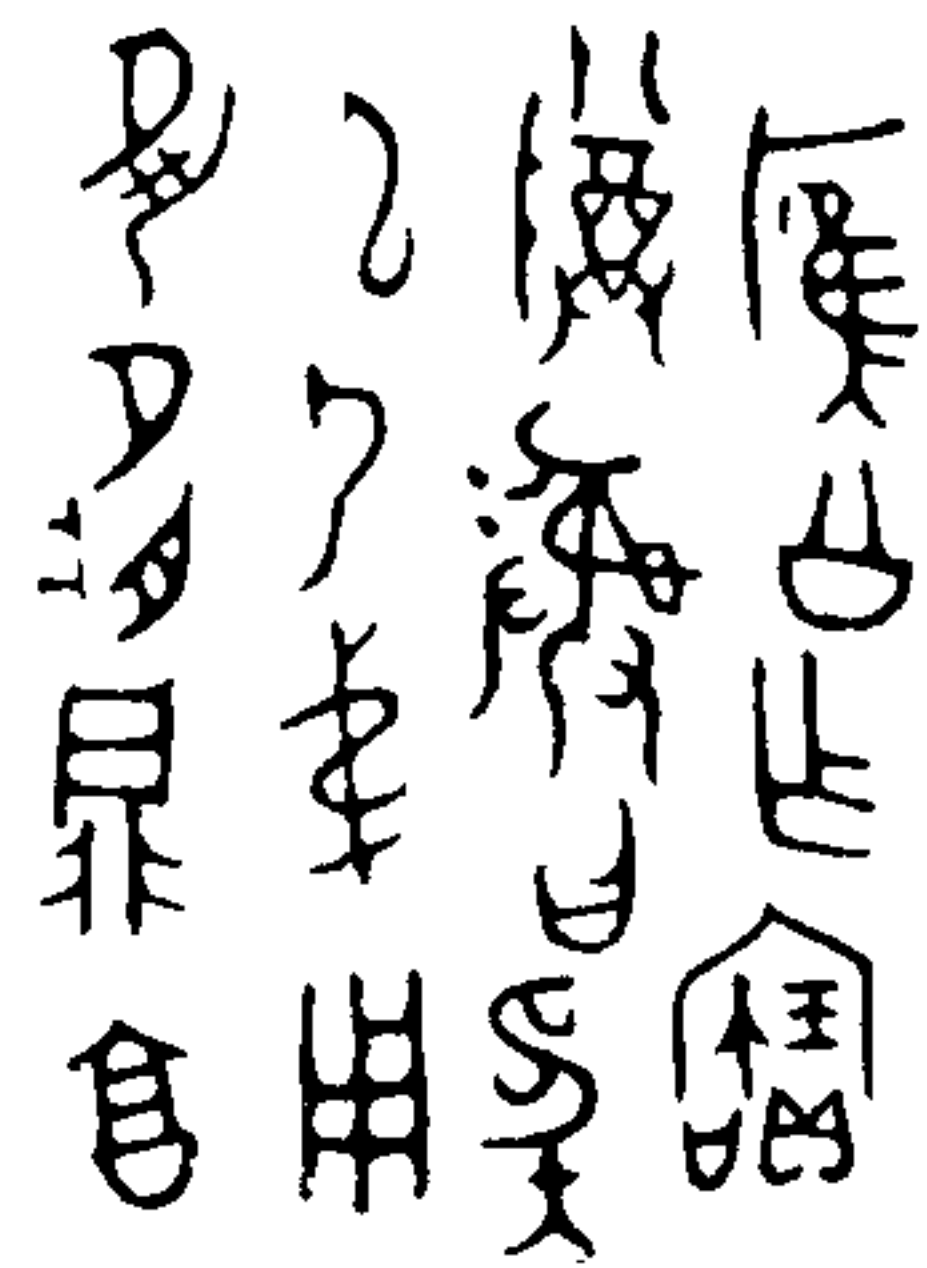 雁公乍寶
尊彝曰奄
以乃弟用
夙夕䵼享